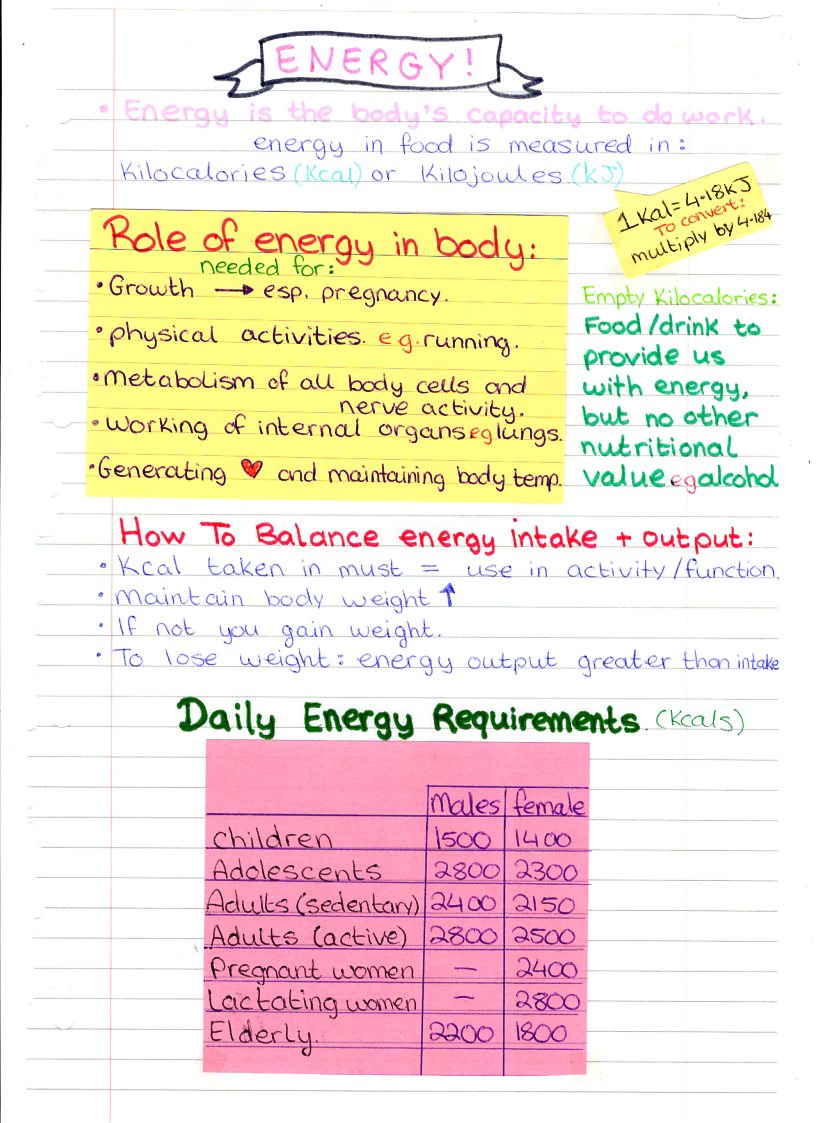 ENERGY!
• Energy is the body's capacity to do work.
energy in food is measured in:
Kilocalories (Kcal) or Kilojoules (kJ)
1 Kal = 4.18KJ
To convert:
multiply by 4.184
Role of energy in body:
needed for:
• Growth → esp. pregnancy.
• physical activities. eg. running.
• metabolism of all body cells and
nerve activity.
• Working of internal organs eg lungs.
• Generating ♥ and maintaining body temp.
Empty Kilocalories:
Food/drink to
provide us
with energy,
but no other
nutritional
value eg alcohol
How To Balance energy intake + output:
• Kcal taken in must = use in activity/function.
• maintain body weight ↑
• If not you gain weight.
• To lose weight: energy output greater than intake
Daily Energy Requirements. (Kcals)
Males female
children 1500 1400
Adolescents 2800 2300
Adults (sedentary) 2400 2150
Adults (active) 2800 2500
Pregnant women — 2400
Lactating women — 2800
Elderly. 2200 1800